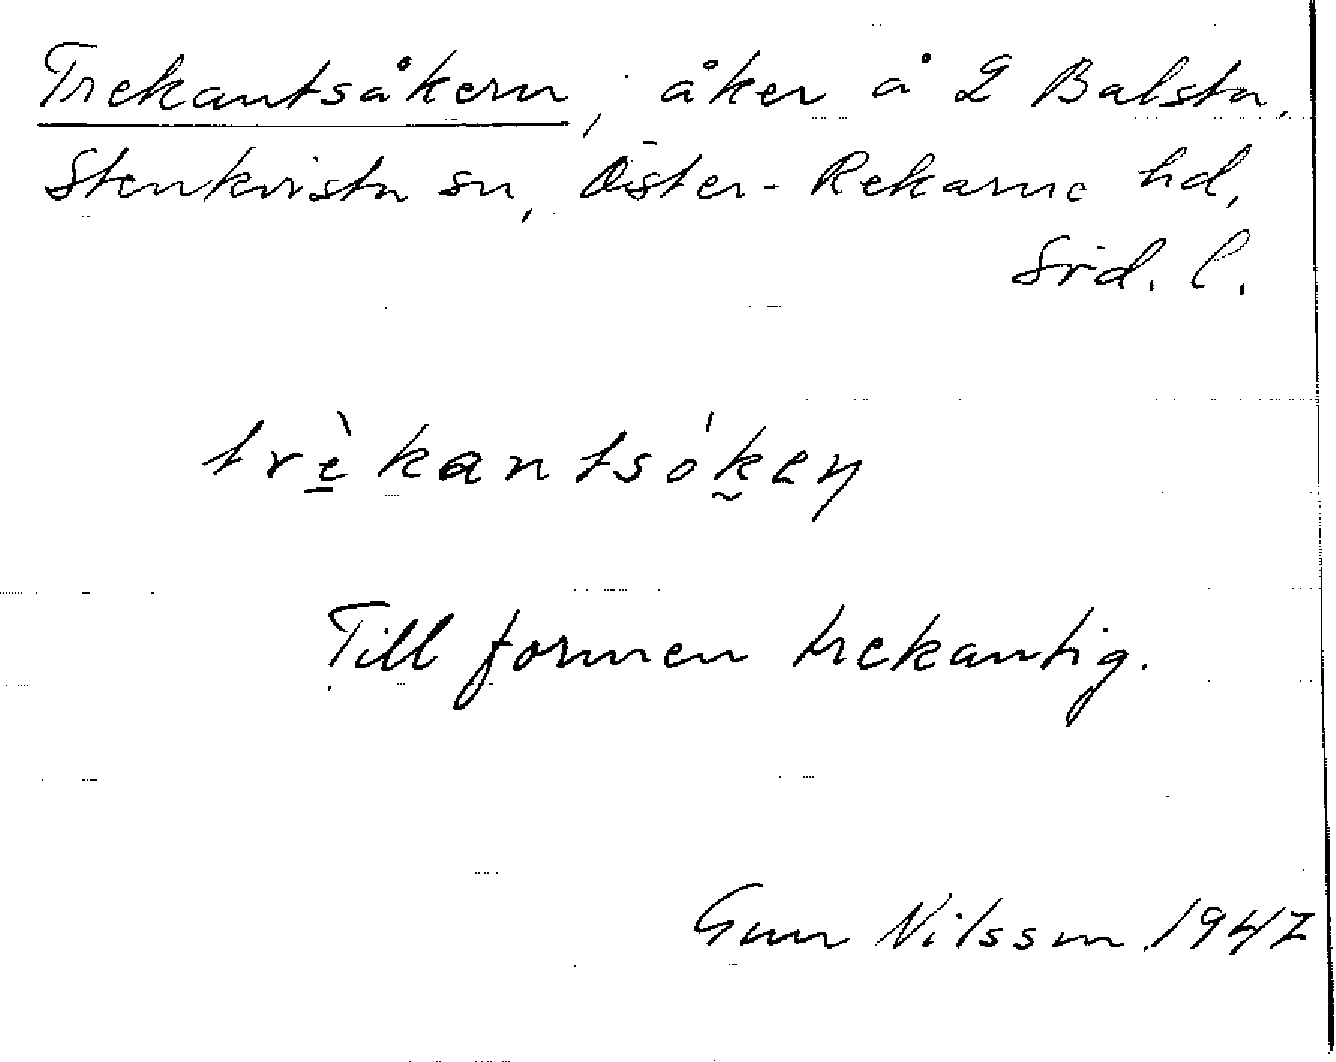 Trekantsåkern, åker å L Balsta,
Stenkvista sn, Öster-Rekarne hd,
Söd. l.
trè̱kantsókeņ
Till formen trekantig.
Gun Nilsson 1947